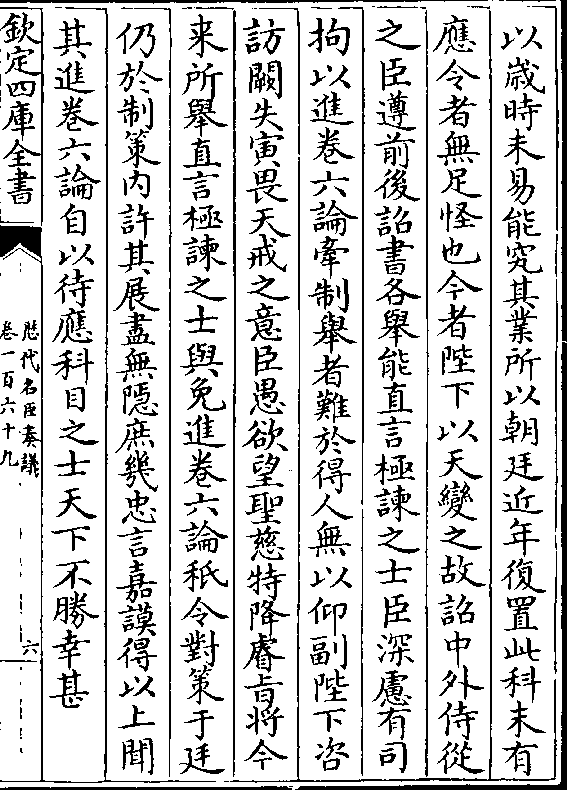 以歳時未易能究其業所以朝廷近年復置此科未有
應令者無足怪也今者陛下以天變之故詔中外侍從
之臣遵前後詔書各舉能直言極諫之士臣深慮有司
拘以進卷六論牽制舉者難於得人無以仰副陛下咨
訪闕失寅畏天戒之意臣愚欲望聖慈特降睿㫖將今
来所舉直言極諫之士與免進卷六論秖令對策于廷
仍於制策内許其展盡無隠庶幾忠言嘉謨得以上聞
其進卷六論自以待應科目之士天下不勝幸甚
欽定四庫全書
歴代名臣奏議
卷一百六十九
六